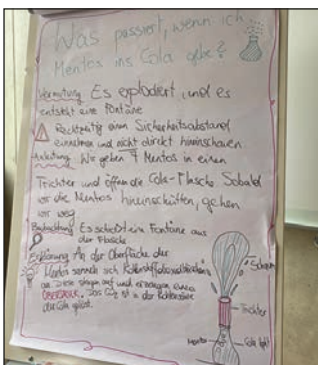 Was passiert, wenn ich
Mentos ins Cola gebe?
Vermutung Es explodiert und es
entsteht eine Fontäne
Rechtzeitig einen Sicherheitsabstand
einnehmen und nicht direkt hineinschauen
Anleitung Wir geben 7 Mentos in einen
Trichter und öffnen die Cola-Flasche. Sobald
wir die Mentos hineinschütten, gehen
wir weg
Beobachtung Es schießt eine Fontäne aus
der Flasche
Erklärung An der Oberfläche der
Mentos sammeln sich
an. Diese steigen auf und erzeugen einen
ÜBERDRUCK. Das CO2 ist in der
der Cola gelöst.
Schaum
Trichter
Mentos
Cola light